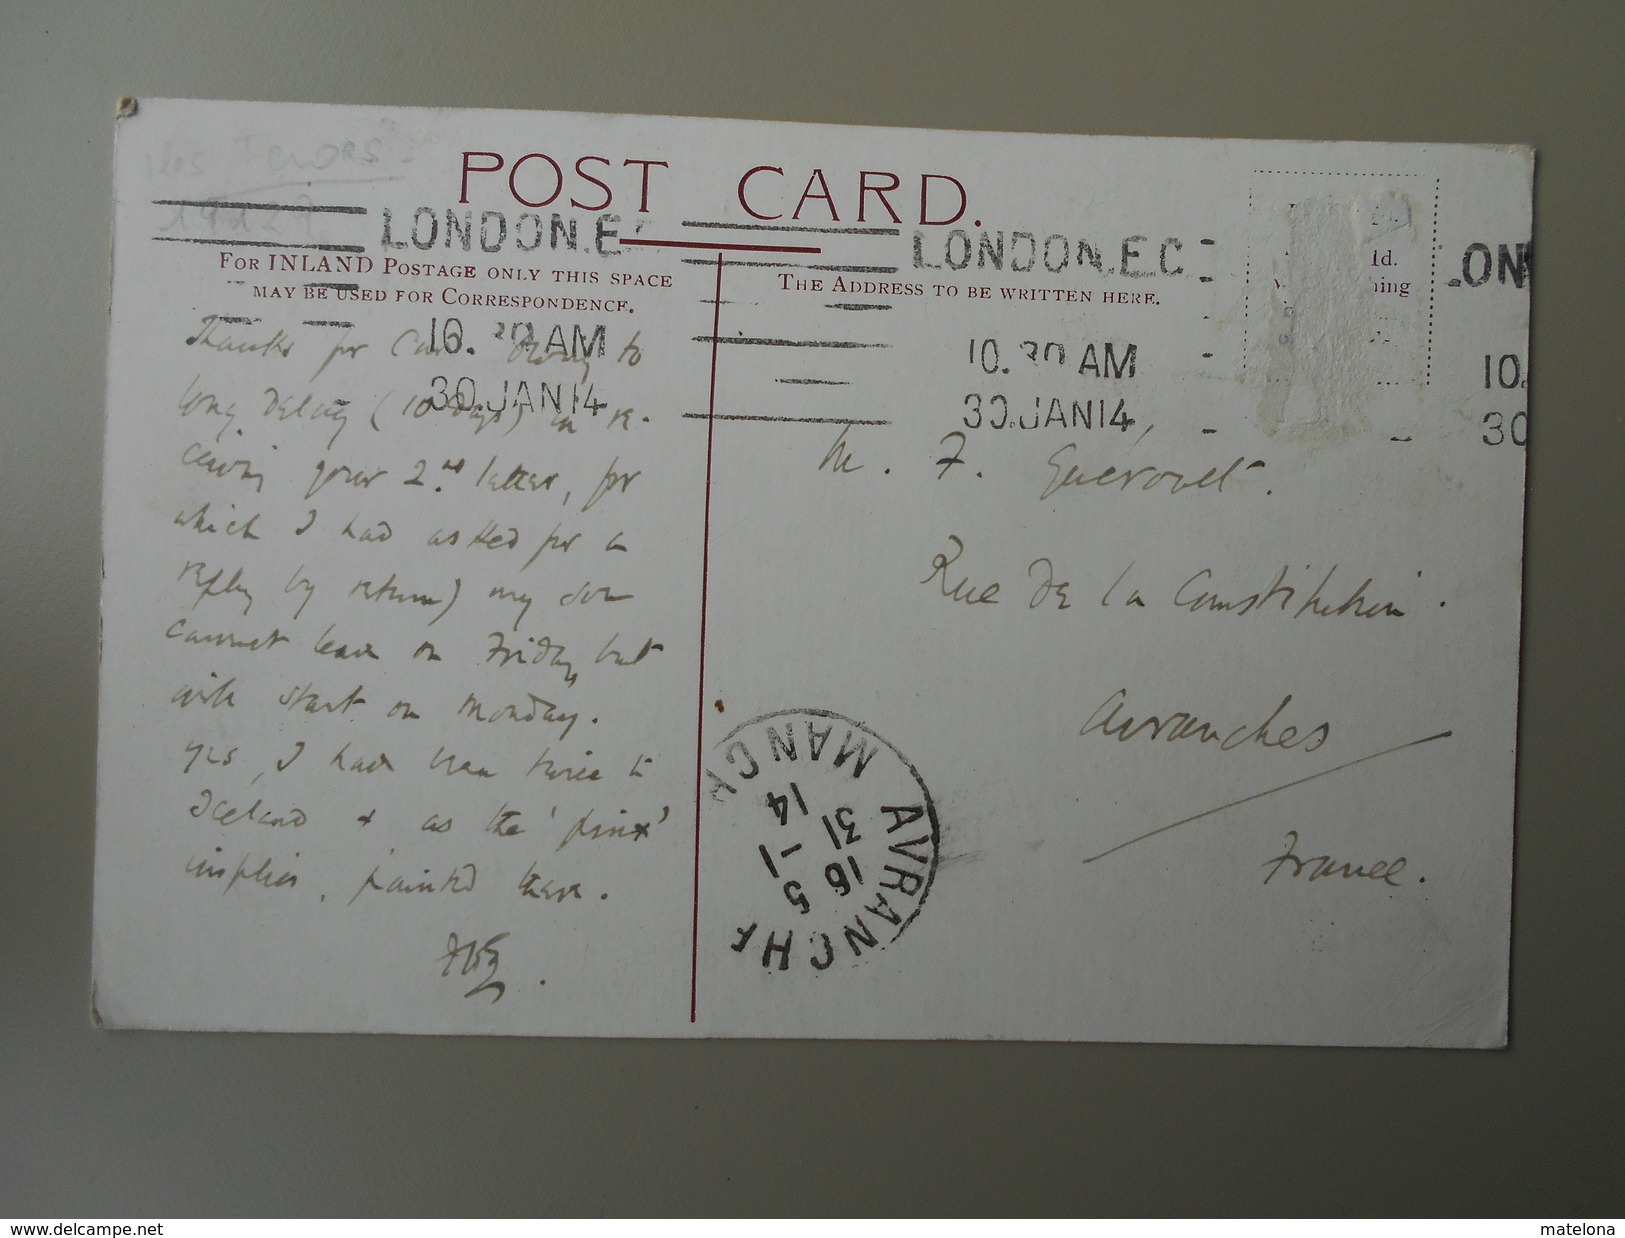 POST CARD.
LONDON.E
LONDON.E.C
LON
FOR INLAND POSTAGE ONLY THIS SPACE
MAY BE USED FOR CORRESPONDENCE.
THE ADDRESS TO BE WRITTEN HERE.
10.30 AM
30.JAN14
10.30 AM
30.JAN14
10.
30
Thanks for Card. Owing to
long delay (10 days) in re-
ceiving your 2nd letter, for
which I had asked for a
reply by return) my son
cannot leave on Friday, but
will start on Monday.
Yes, I have been twice to
Iceland & as the 'pinx'
implies, painted there.
M. F. Guérouet.
Rue de la Constitution.
Avranches
France.
AVRANCHE
MANCH
16 5
31 - 1
14
www.delcampe.net
matelona